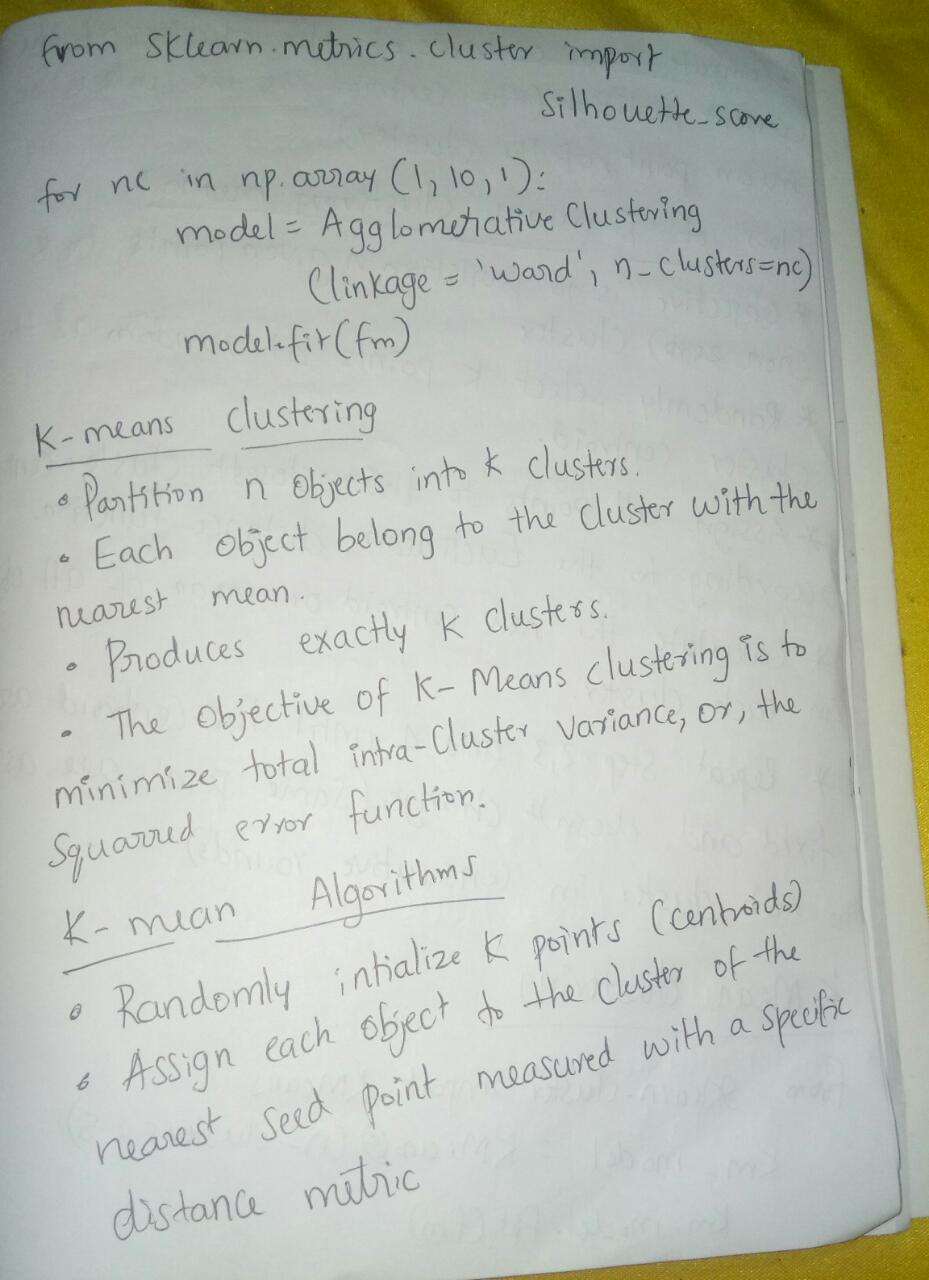 from Sklearn.metrics.cluster import
Silhouette_score
for nc in np.array (1, 10, 1):
model = Agglomerative Clustering
(linkage = 'ward', n_clusters=nc)
model.fit(fm)
K-means clustering
• Partition n Objects into k clusters.
• Each object belong to the cluster with the
nearest mean.
• Produces exactly K clusters.
• The Objective of K-Means clustering is to
minimize total intra-Cluster variance, or, the
Squarred error function.
K-mean Algorithms
• Randomly intialize K points (centroids)
• Assign each object to the cluster of the
nearest seed point measured with a specific
distance metric